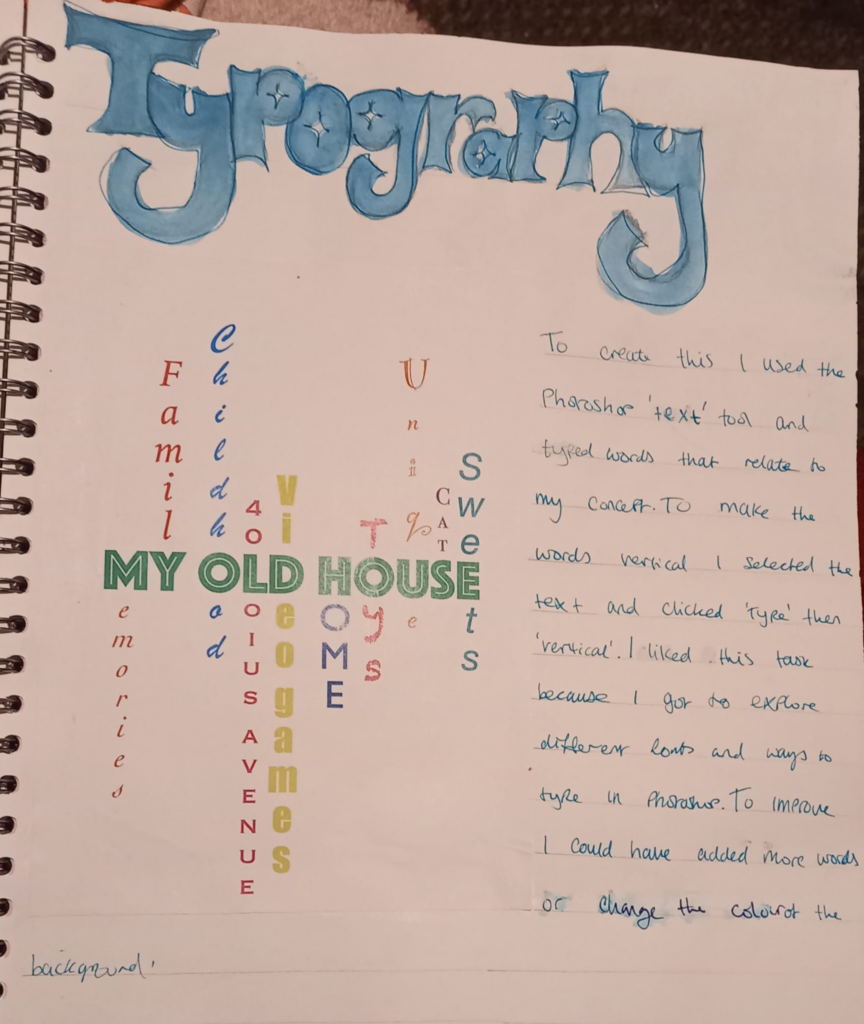 Typography
Family
Memories
Childhood
40 LOIUS AVENUE
ViDeogames
HOME
TOys
UniqUe
CATS
SweEts
MY OLD HOUSE
To create this I used the
Photoshop 'text' tool and
typed words that relate to
my concept. To make the
words vertical I selected the
text and clicked 'Type' then
'vertical'. I liked this task
because I got to explore
different fonts and ways to
type in Photoshop. To improve
I could have added more words
or change the colour of the
background.